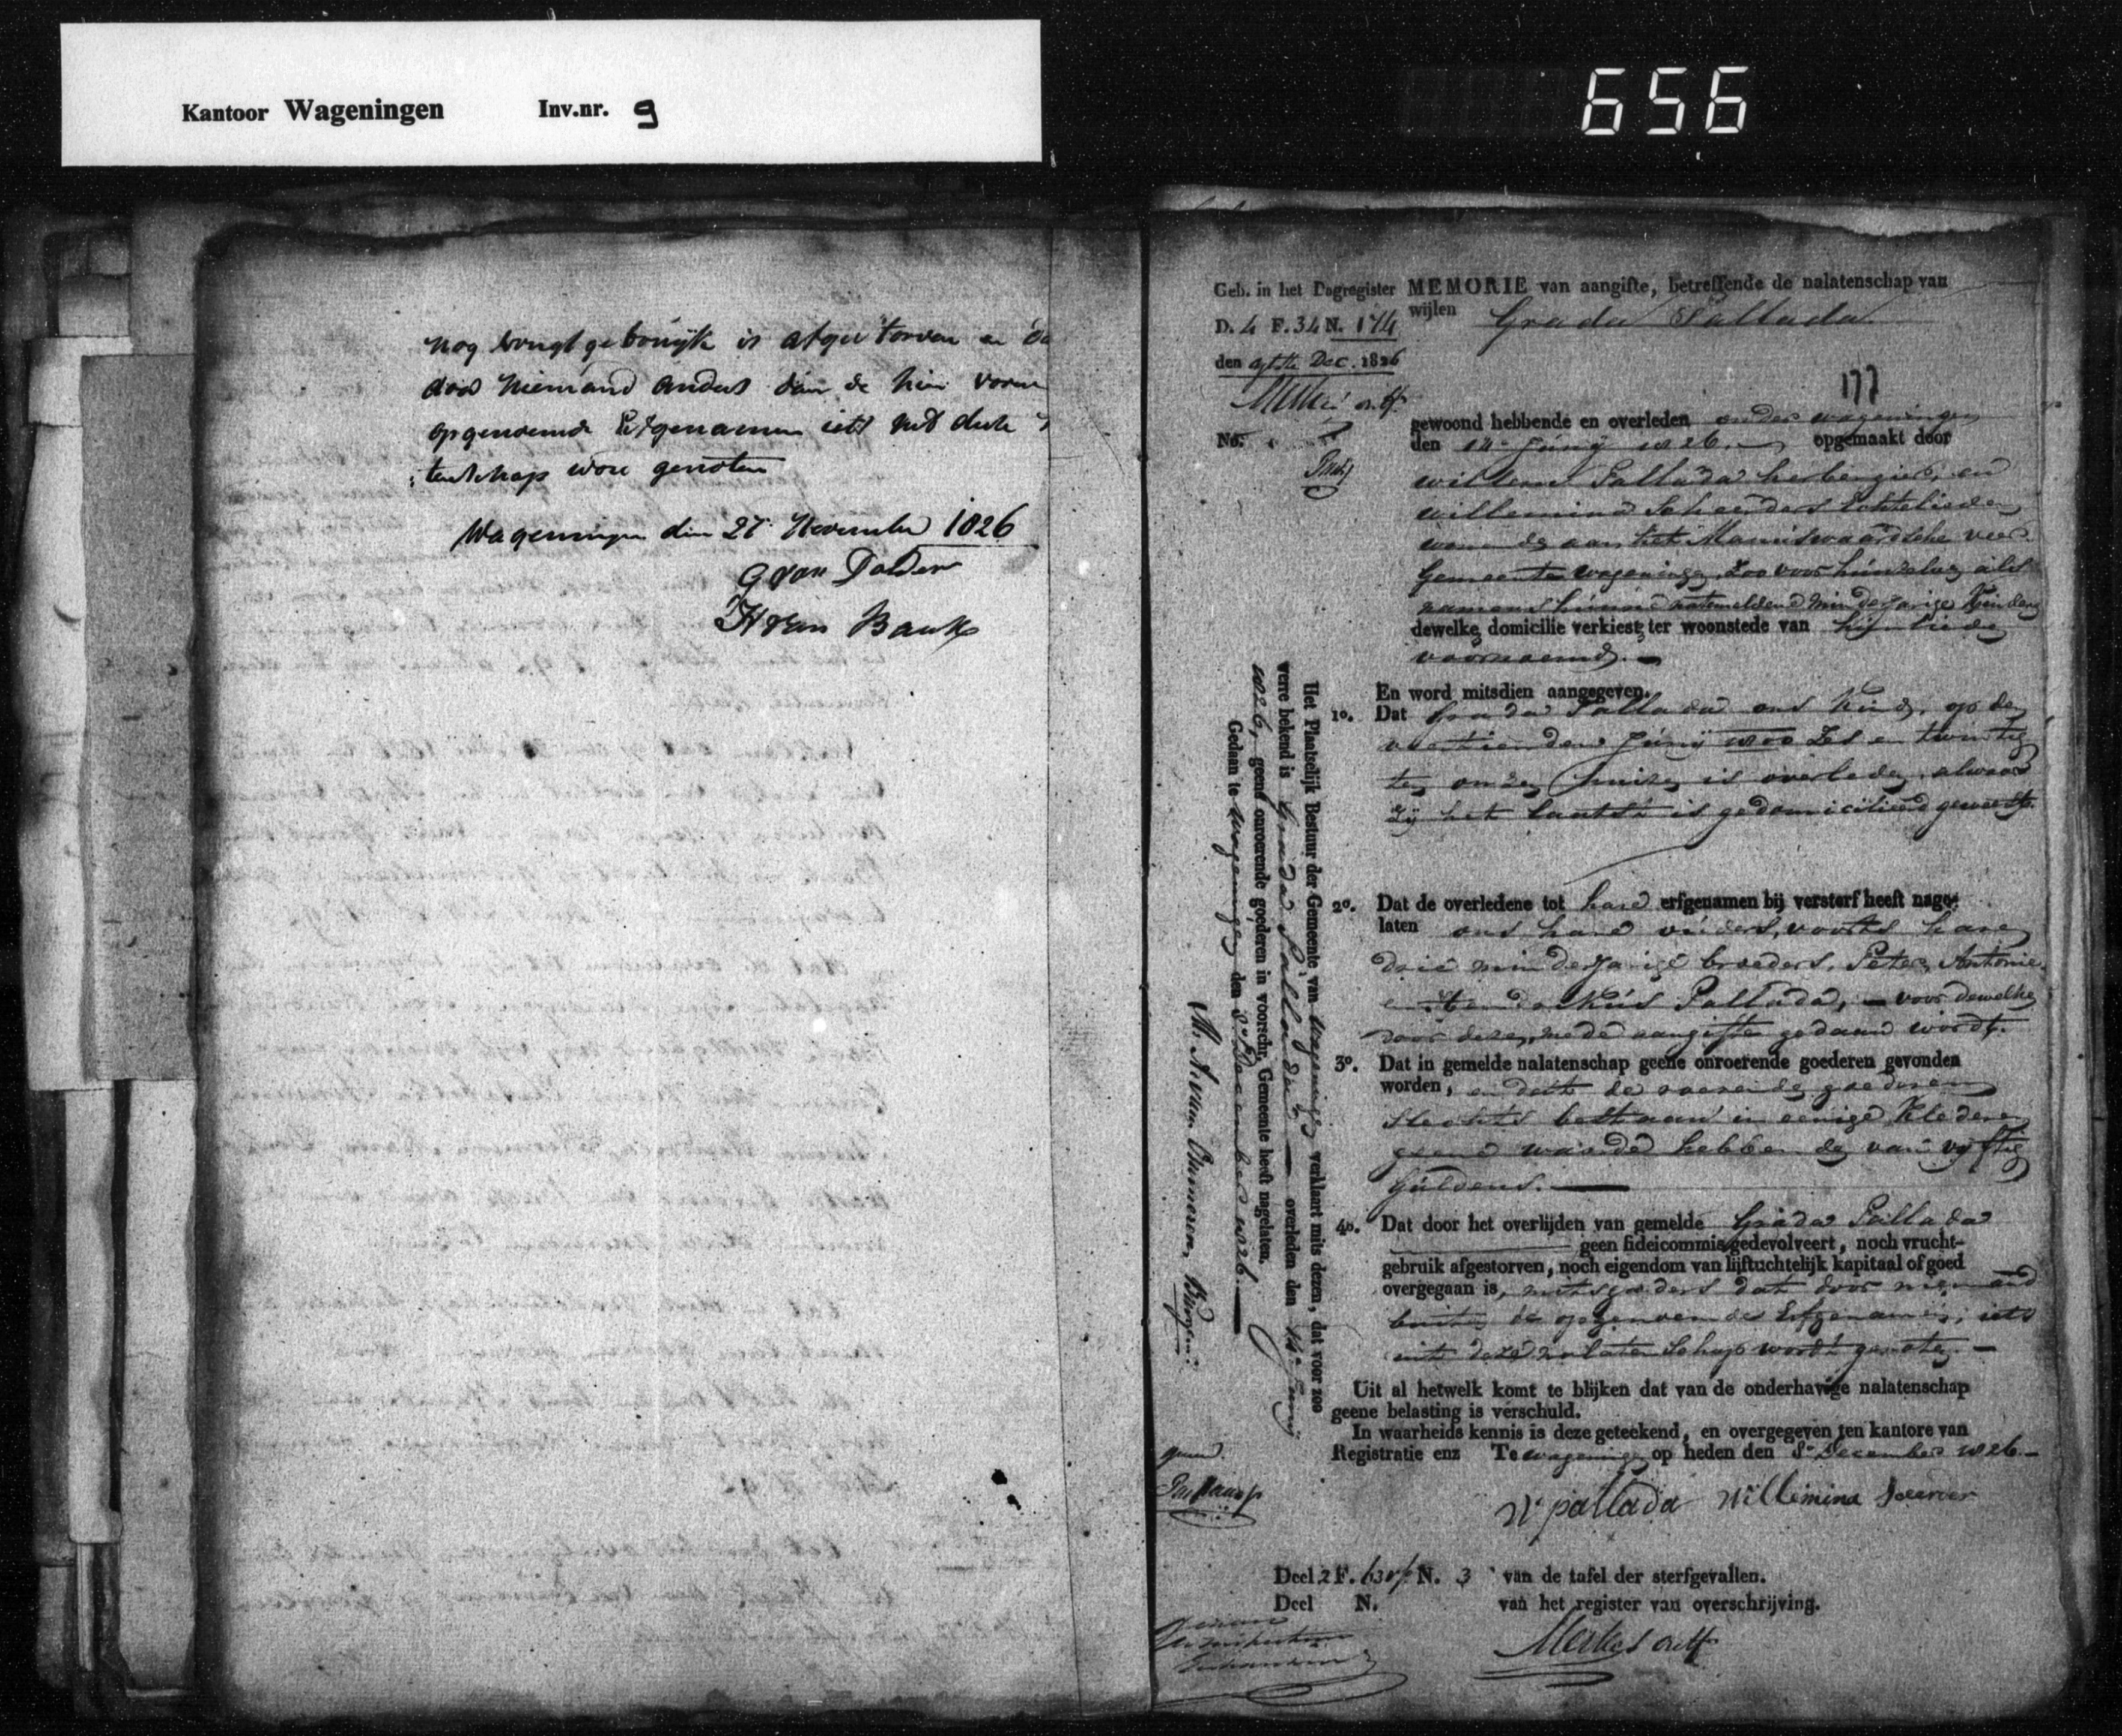 Kantoor Wageningen Inv.nr. 9
656
nog vrugtgebruijk is afgestorven en
door niemand anders dan de hier voren
opgenoemde Erfgenamen iets uit deze
tenschap word genoten
Wageningen den 27 November 1826
G van Dolder
H van Bank
Geb. in het Dagregister
D. 4 F. 34 N. 174
den agtste Dec. 1826
No.
MEMORIE van aangifte, betreffende de nalatenschap van
wijlen Grada Pallada
177
gewoond hebbende en overleden onder wageningen
den 14e Junij 1826. opgemaakt door
willem Pallada herbergier, en
willemina Scheerders Echtelieden
wonende aan het Manuswaardsche veer
Gemeente wageningen, zoo voor hunzelven als
namens hunne natemeldene minderjarige kinderen
dewelke domicilie verkiest ter woonstede van hun lieden
voornoemd.
En word mitsdien aangegeven.
1o. Dat Grada Pallada ons kind, op den
veertienden Junij 1800 zes en twintig
ten onzen huize is overleden, alwaar
zij het laatste is gedomicilieerd geweest.
2o. Dat de overledene tot hare erfgenamen bij versterf heeft nage-
laten ons hare ouders, voorts hare
drie minderjarige broeders, Peter, Antonie
en Hendrikus Pallada, voor dewelke
door deze mede aangifte gedaan wordt.
3o. Dat in gemelde nalatenschap geene onroerende goederen gevonden
worden, en dat de roerende goederen
slechts bestaan in eenige klederen
geene waarde hebbende van vijftig
Guldens.
4o. Dat door het overlijden van gemelde Grada Pallada
geen fideicommis gedevolveert, noch vrucht-
gebruik afgestorven, noch eigendom van lijftuchtelijk kapitaal of goed
overgegaan is, mitsgaders dat door niemand
buiten de opgenoemde Erfgenamen, iets
uit deze nalatenschap wordt genoten.
Uit al hetwelk komt te blijken dat van de onderhavige nalatenschap
geene belasting is verschuld.
In waarheids kennis is deze geteekend, en overgegeven ten kantore van
Registratie enz Te wageningen op heden den 8e December 1826.
W pallada Willemina
Deel 2 F. 63 N. 3 van de tafel der sterfgevallen.
Deel N. van het register van overschrijving.
Het Plaatselijk Bestuur der Gemeente van Wageningen verklaart mits dezen, dat voor zoo
verre bekend is Grada Pallada overleden den 14e Junij
1826, geene onroerende goederen in voorschr. Gemeente heeft nagelaten.
Gedaan te Wageningen den 8e December 1826.